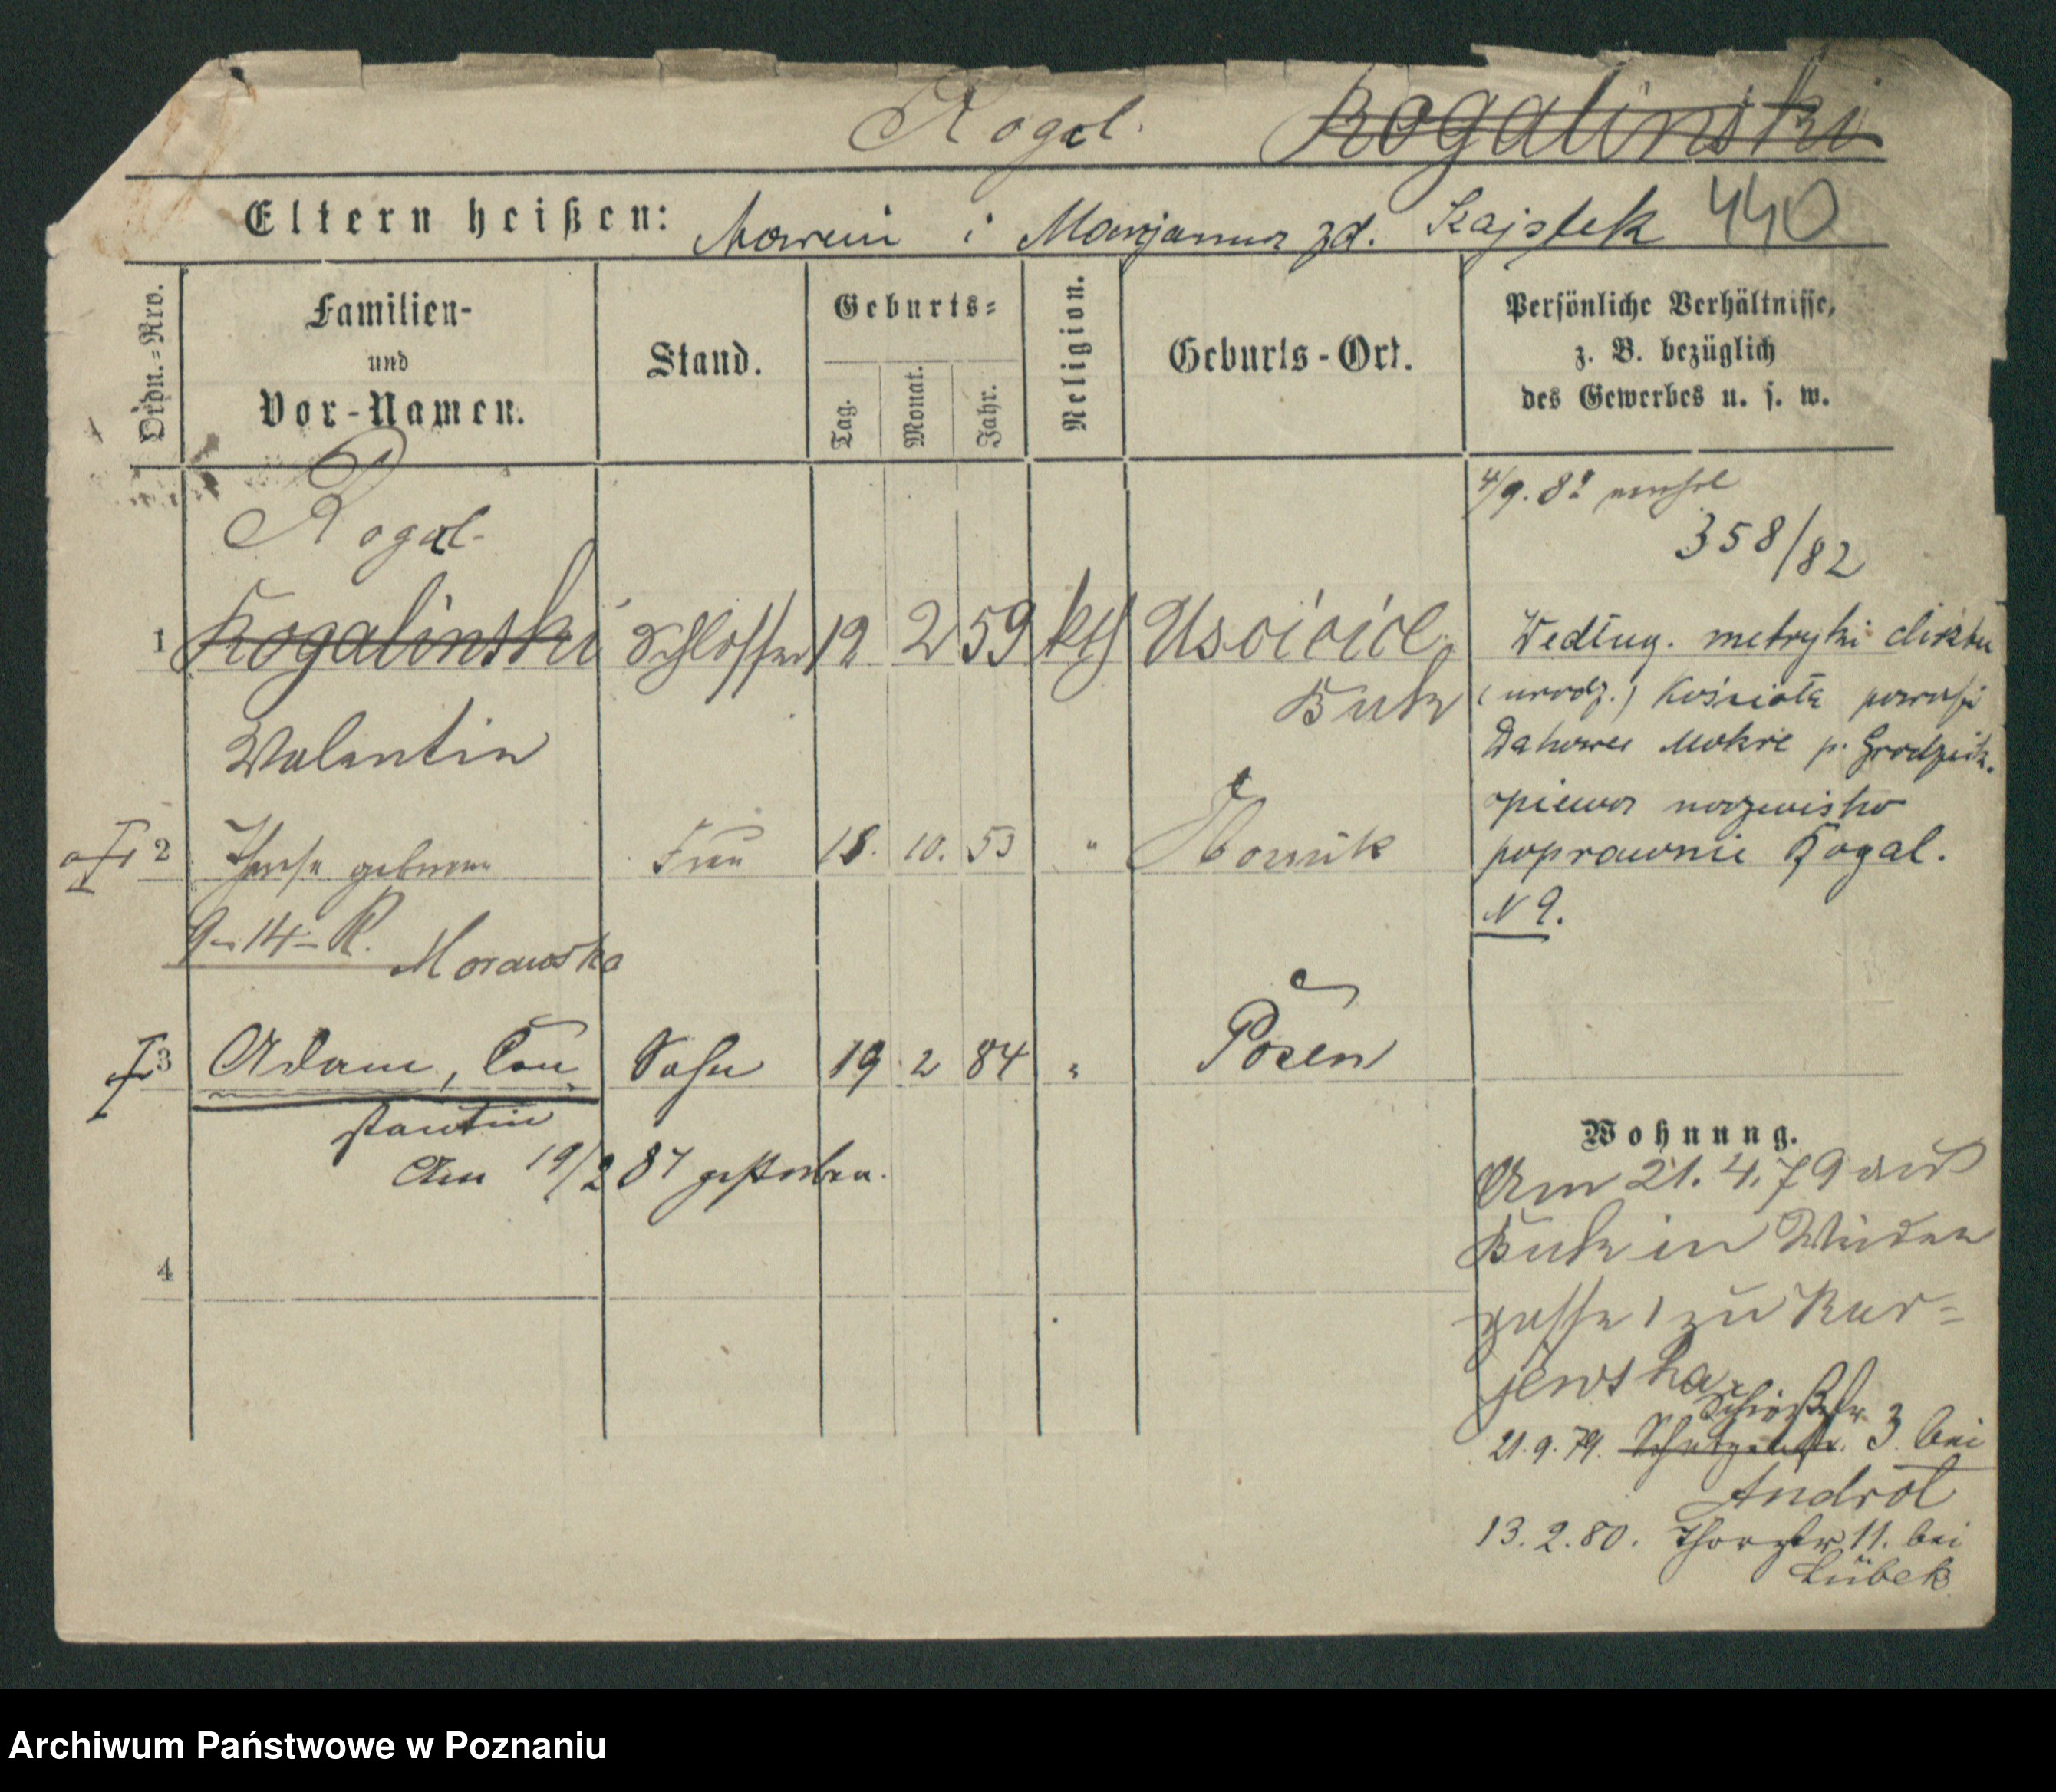 Rogal. Rogalinski
Eltern heißen: Marcin i Marjanna zd. Kajstek 440
Ordn.=Nro.
Familien-
und
Vor-Namen.
Stand.
Geburts=
Tag.
Monat.
Jahr.
Religion.
Geburts-Ort.
Persönliche Verhältnisse,
z. B. bezüglich
des Gewerbes u. s. w.
4/9. 82
358/82
Rogal-
1 Rogalinski Schlosser 12 2 59 kth Uscicice
Buk
Valentin
Według. metryki chrztu
(urodz.) Kościoła parafji
Dakowe Mokre p. Grodzisk.
opiewa nazwisko
poprawnie Rogal.
N 9.
2 Therese geborene Frau 18. 10. 53 "
9-14-R. Morawska
3 Adam, Con Sohn 19 2 84 " Posen
stantin
Am 19/2 87 gestorben.
4
Wohnung.
Am 21.4.79 aus
Buk in Weiden
gasse 1 zu Kur=
jewska.
Schießstr
21.9.79. Schützenstr. 3 bei
Androt
13.2.80. Thorstr 11. bei
Lübek
Archiwum Państwowe w Poznaniu